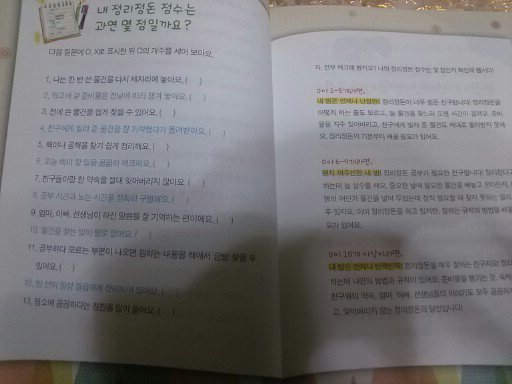 내 정리정돈 점수는
과연 몇 점일까요?
다음 질문에 O, X로 표시한 뒤 O의 개수를 세어 보아요.
1. 나는 한 번 쓴 물건을 다시 제자리에 놓아요. ( )
2. 학교에 갈 준비물은 전날에 미리 챙겨 놓아요. ( )
3. 전에 쓴 물건을 쉽게 찾을 수 있어요. ( )
4. 친구에게 빌려 준 물건을 잘 기억했다가 돌려받아요. ( )
5. 책이나 공책을 찾기 쉽게 정리해요. ( )
6. 오늘 해야 할 일을 꼼꼼히 체크해요. ( )
7. 친구들이랑 한 약속을 절대 잊어버리지 않아요. ( )
8. 공부 시간과 노는 시간을 정확히 구별해요. ( )
9. 엄마, 아빠, 선생님이 하신 말씀을 잘 기억하는 편이에요. ( )
10. 물건을 찾는 일이 별로 없어요. ( )
11. 공부하다 모르는 부분이 나오면 원하는 내용을 책에서 금방 찾을 수
있어요. ( )
12. 방 안이 항상 깔끔하게 정리되어 있어요. ( )
13. 평소에 꼼꼼하다는 칭찬을 많이 들어요. ( )
자, 전부 체크해 봤지요? 나의 정리정돈 점수는 몇 점인지 확인해 봅시다!
O이 1~5개라면,
내 방은 언제나 난장판! 정리정돈이 너무 힘든 친구랍니다! 정리정돈을
어떻게 하는 줄도 모르고, 늘 물건을 찾느라 오랜 시간이 걸려요. 준비
물을 자주 잊어버리고, 친구에게 빌려 준 물건도 제대로 돌려받지 못해
요. 정리정돈의 기본부터 배울 필요가 있어요.
O이 6~9개라면,
왠지 어수선한 내 방! 정리정돈 공부가 필요한 친구랍니다! 정리한다고
하는데 늘 실수를 해요. 중요한 날에 필요한 물건을 빼놓고 온다든지,
명히 어딘가 물건을 넣어 두었는데 정작 필요할 때 찾지 못하는 일이
주 있지요. 이미 정리정돈을 하고 있지만, 잘하는 규칙과 방법을 배울
요가 있어요.
O이 10개 이상이라면,
내 방은 언제나 반짝반짝! 정리정돈을 매우 잘하는 친구지요! 정리
하는데 나만의 방법과 규칙이 있어요. 준비물을 챙기는 것,
친구와의 약속, 엄마, 아빠, 선생님들의 이야기도 모두 꼼꼼하게
고, 잊어버리지 않는 정리정돈의 달인입니다!